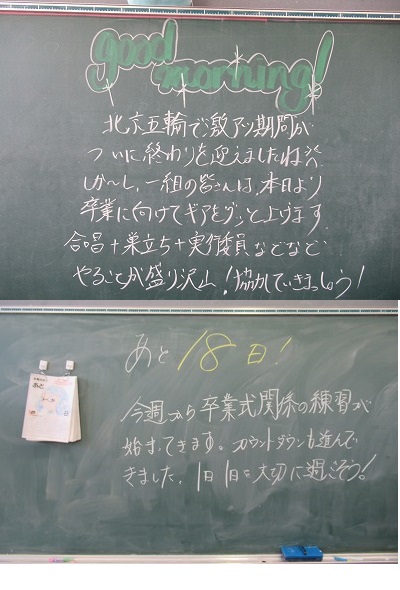 good
morning!
北京五輪で激アツ期間が
ついに終わりを迎えましたね
しか〜し、一組の皆さんは、本日より
卒業に向けてギアをグッと上げます。
合唱+巣立ち+実行委員などなど
やることが盛り沢山！協力していきましょう！
あと18日！
今週から卒業式関係の練習が
始まってきます。カウントダウンも進んで
きました。1日1日を大切に過ごそう！